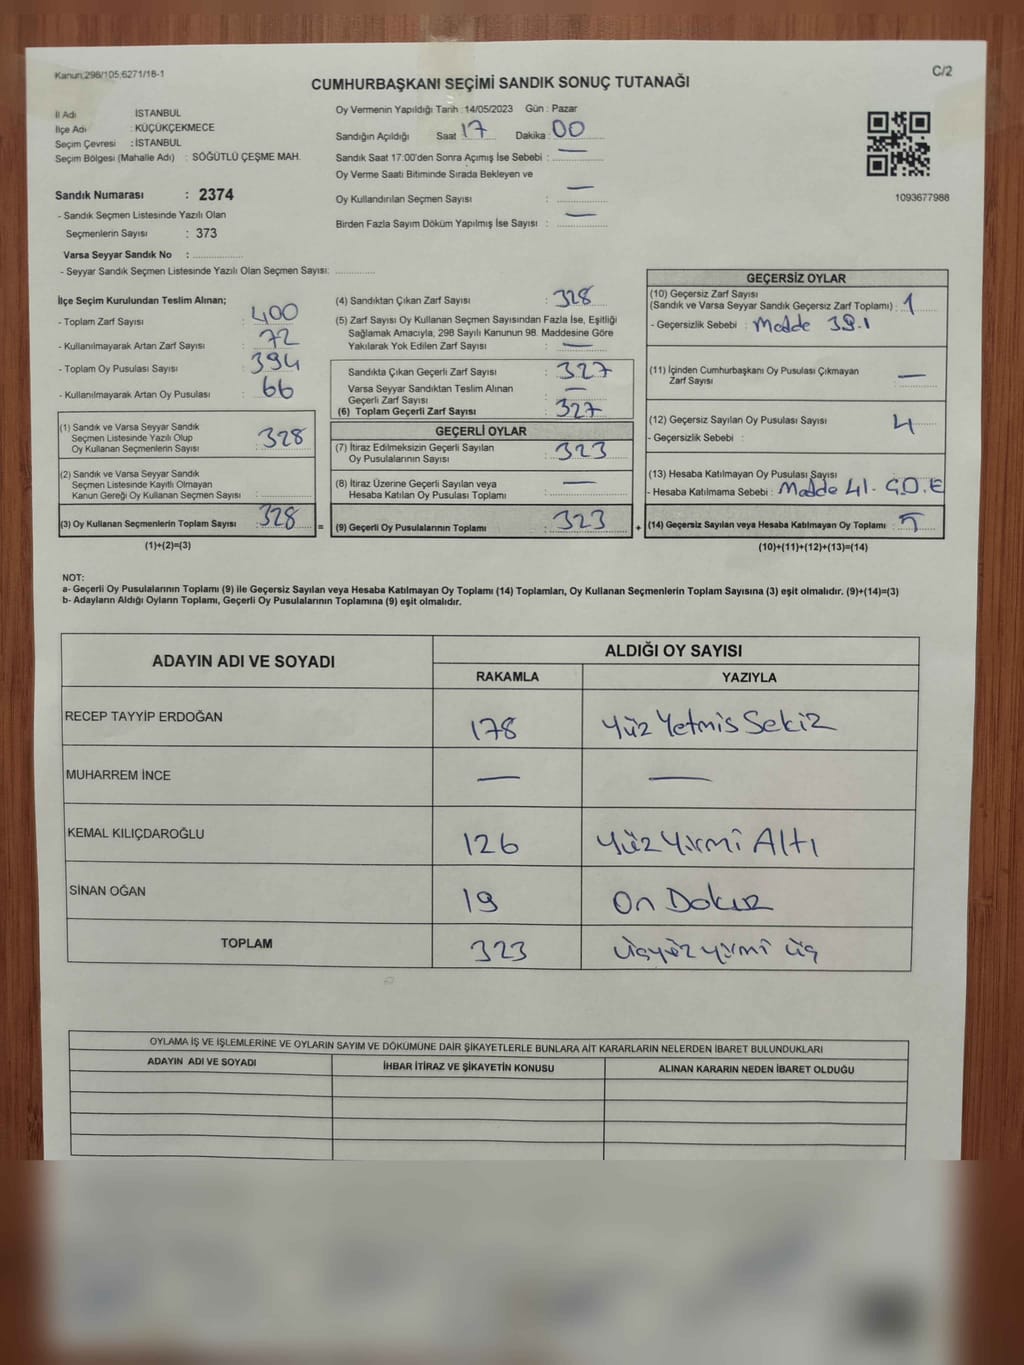 Kanun:298/105;6271/18-1
C/2
CUMHURBAŞKANI SEÇİMİ SANDIK SONUÇ TUTANAĞI
İl Adı İSTANBUL
İlçe Adı : KÜÇÜKÇEKMECE
Seçim Çevresi : İSTANBUL
Seçim Bölgesi (Mahalle Adı) : SÖĞÜTLÜ ÇEŞME MAH.
Sandık Numarası : 2374
- Sandık Seçmen Listesinde Yazılı Olan
Seçmenlerin Sayısı : 373
Varsa Seyyar Sandık No : ..............
- Seyyar Sandık Seçmen Listesinde Yazılı Olan Seçmen Sayısı: ...........
Oy Vermenin Yapıldığı Tarih : 14/05/2023 Gün : Pazar
Sandığın Açıldığı Saat 17 Dakika : 00
Sandık Saat 17:00'den Sonra Açımış İse Sebebi : —
Oy Verme Saati Bitiminde Sırada Bekleyen ve
Oy Kullandırılan Seçmen Sayısı : —
Birden Fazla Sayım Döküm Yapılmış İse Sayısı : —
1093677986
İlçe Seçim Kurulundan Teslim Alınan;
- Toplam Zarf Sayısı : 400
- Kullanılmayarak Artan Zarf Sayısı : 72
- Toplam Oy Pusulası Sayısı : 394
- Kullanılmayarak Artan Oy Pusulası : 66
(1) Sandık ve Varsa Seyyar Sandık
Seçmen Listesinde Yazılı Olup
Oy Kullanan Seçmenlerin Sayısı : 328
(2) Sandık ve Varsa Seyyar Sandık
Seçmen Listesinde Kayıtlı Olmayan
Kanun Gereği Oy Kullanan Seçmen Sayısı :
(3) Oy Kullanan Seçmenlerin Toplam Sayısı : 328
(1)+(2)=(3)
(4) Sandıktan Çıkan Zarf Sayısı : 328
(5) Zarf Sayısı Oy Kullanan Seçmen Sayısından Fazla İse, Eşitliği
Sağlamak Amacıyla, 298 Sayılı Kanunun 98. Maddesine Göre
Yakılarak Yok Edilen Zarf Sayısı : —
Sandıkta Çıkan Geçerli Zarf Sayısı : 327
Varsa Seyyar Sandıktan Teslim Alınan
Geçerli Zarf Sayısı : —
(6) Toplam Geçerli Zarf Sayısı : 327
GEÇERLİ OYLAR
(7) İtiraz Edilmeksizin Geçerli Sayılan
Oy Pusulalarının Sayısı : 323
(8) İtiraz Üzerine Geçerli Sayılan veya
Hesaba Katılan Oy Pusulası Toplamı : —
= (9) Geçerli Oy Pusulalarının Toplamı : 323
GEÇERSİZ OYLAR
(10) Geçersiz Zarf Sayısı
(Sandık ve Varsa Seyyar Sandık Geçersiz Zarf Toplamı) : 1
- Geçersizlik Sebebi : Madde 39.1
(11) İçinden Cumhurbaşkanı Oy Pusulası Çıkmayan
Zarf Sayısı —
(12) Geçersiz Sayılan Oy Pusulası Sayısı : 4
- Geçersizlik Sebebi :
(13) Hesaba Katılmayan Oy Pusulası Sayısı
- Hesaba Katılmama Sebebi : Madde 41- G.O.E
+ (14) Geçersiz Sayılan veya Hesaba Katılmayan Oy Toplamı : 5
(10)+(11)+(12)+(13)=(14)
NOT:
a- Geçerli Oy Pusulalarının Toplamı (9) ile Geçersiz Sayılan veya Hesaba Katılmayan Oy Toplamı (14) Toplamları, Oy Kullanan Seçmenlerin Toplam Sayısına (3) eşit olmalıdır. (9)+(14)=(3)
b- Adayların Aldığı Oyların Toplamı, Geçerli Oy Pusulalarının Toplamına (9) eşit olmalıdır.
ADAYIN ADI VE SOYADI
ALDIĞI OY SAYISI
RAKAMLA YAZIYLA
RECEP TAYYİP ERDOĞAN 178 Yüz Yetmis Sekiz
MUHARREM İNCE — —
KEMAL KILIÇDAROĞLU 126 Yüz Yirmi Altı
SİNAN OĞAN 19 On Dokuz
TOPLAM 323 üçyüz yirmi üç
OYLAMA İŞ VE İŞLEMLERİNE VE OYLARIN SAYIM VE DÖKÜMÜNE DAİR ŞİKAYETLERLE BUNLARA AİT KARARLARIN NELERDEN İBARET BULUNDUKLARI
ADAYIN ADI VE SOYADI İHBAR İTİRAZ VE ŞİKAYETİN KONUSU ALINAN KARARIN NEDEN İBARET OLDUĞU